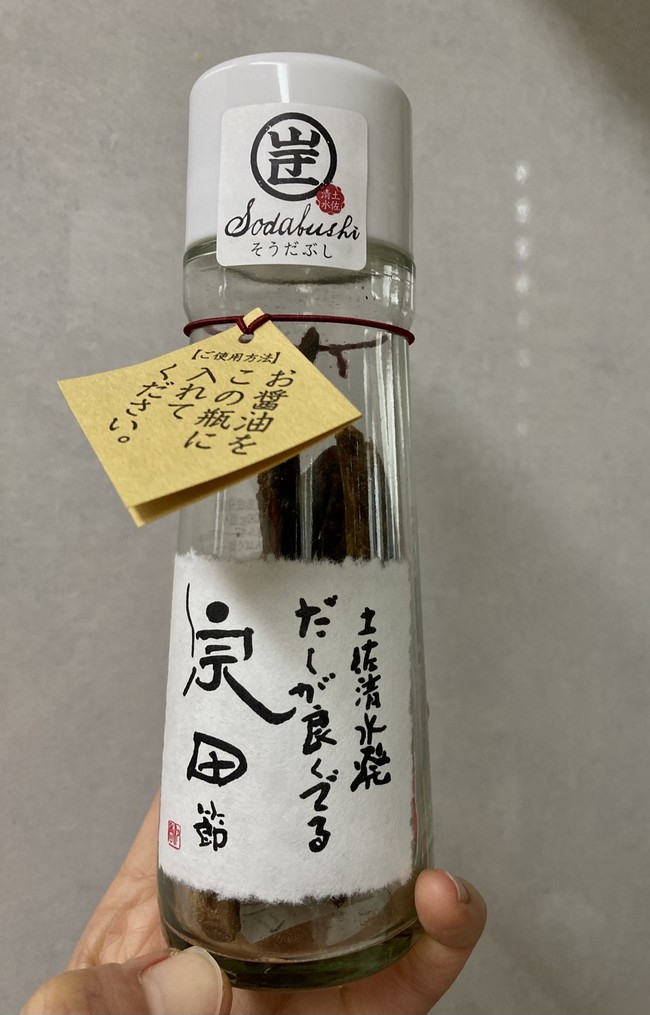 土佐
清水
Sodabushi
そうだぶし
【ご使用方法】
お醤油を
この瓶に
入れて
ください。
土佐清水発
だしが良くでる
宗田節